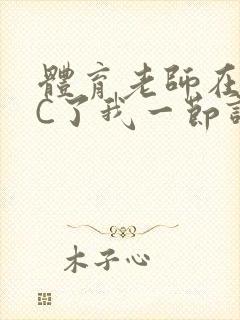 體育老師在
C了我一節
木子心